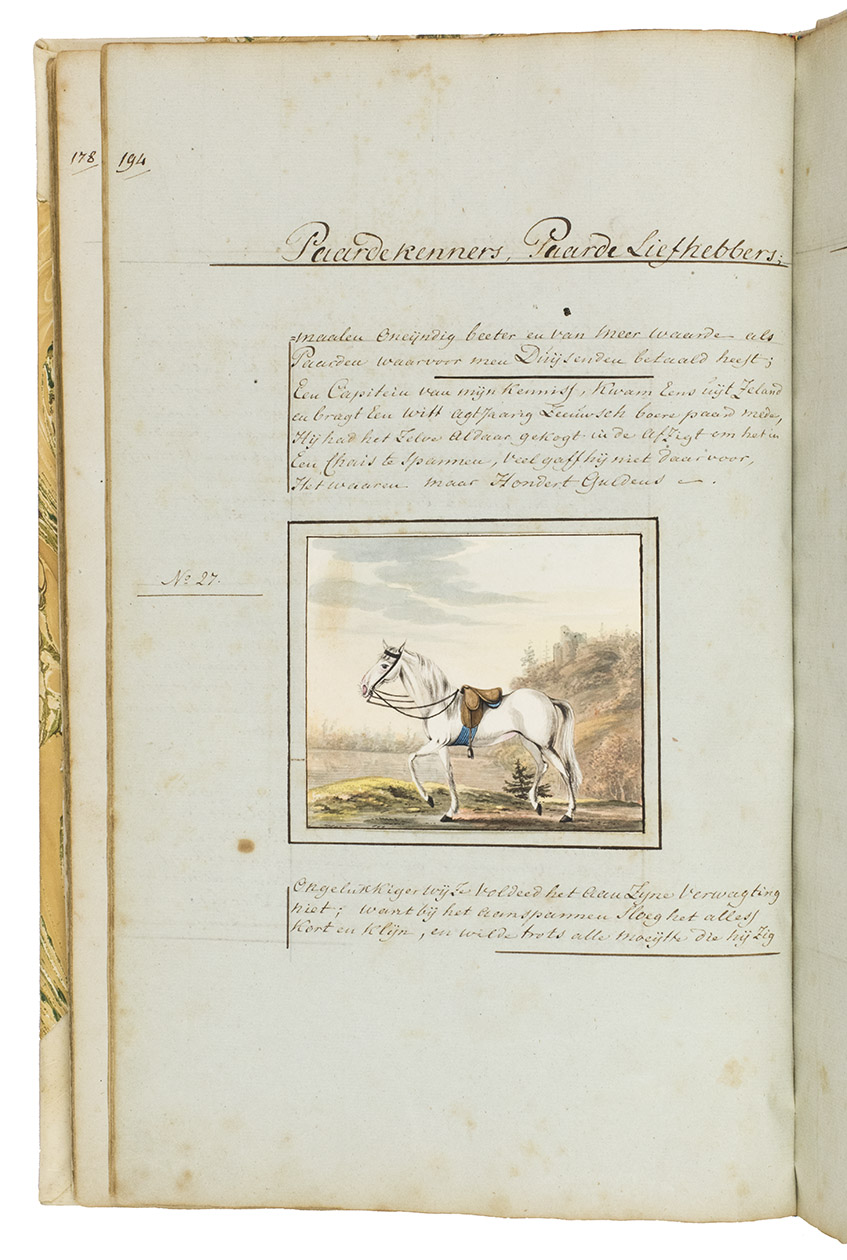 178
194
Paardekenners, Paarde Liefhebbers;
=maalen Oneijndig beeter en van Meer waarde als
Paarden waarvoor men Duijsenden betaald heeft;
Een Capitein van mijn Kenniss, Kwam Eens uijt Zeland
en bragt Een witt agtJaarig Zeeuwsch boere paard mede,
Hij had het Zelve Aldaar gekogt in de afzigt om het in
Een Chais te Spannen, veel gaff hij niet daarvoor,
Het waaren maar Hondert Guldens .
No 27.
Ongelukkiger wijze voldeed het aan Zijne verwagting
niet; want bij het aanspannen Sloeg het alless
Kort en Klijn, en wilde trots alle moeijtte die hij Zig